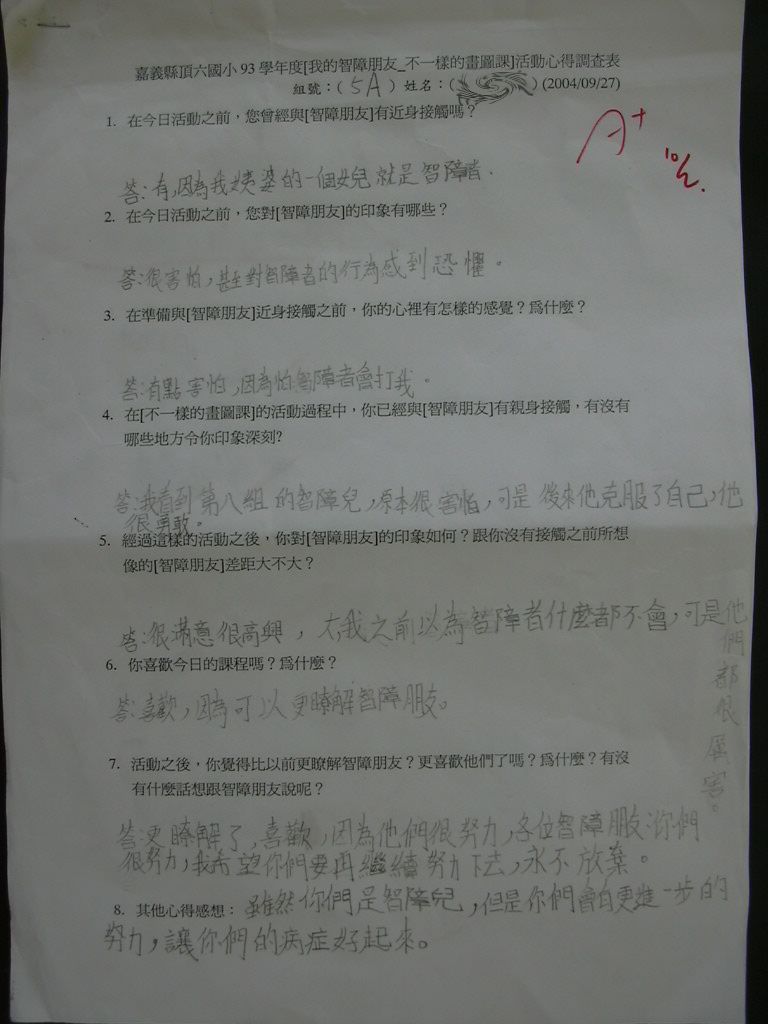 嘉義縣頂六國小 93 學年度[我的智障朋友_不一樣的畫圖課]活動心得調查表
組號：(5A) 姓名：( ) (2004/09/27)
A+
10/2.
1. 在今日活動之前，您曾經與[智障朋友]有近身接觸嗎？
答:有,因為我姨婆的一個女兒就是智障者.
2. 在今日活動之前，您對[智障朋友]的印象有哪些？
答:很害怕,甚至對智障者的行為感到恐懼。
3. 在準備與[智障朋友]近身接觸之前，你的心裡有怎樣的感覺？爲什麼？
答:有點害怕,因為怕智障者會打我。
4. 在[不一樣的畫圖課]的活動過程中，你已經與[智障朋友]有親身接觸，有沒有
哪些地方令你印象深刻?
答:我看到第八組的智障兒,原本很害怕,可是後來他克服了自己,他
很勇敢。
5. 經過這樣的活動之後，你對[智障朋友]的印象如何？跟你沒有接觸之前所想
像的[智障朋友]差距大不大？
答:很滿意很高興，大,我之前以為智障者什麼都不會,可是他
們都很厲害。
6. 你喜歡今日的課程嗎？爲什麼？
答:喜歡,因為可以更瞭解智障朋友。
7. 活動之後，你覺得比以前更瞭解智障朋友？更喜歡他們了嗎？爲什麼？有沒
有什麼話想跟智障朋友說呢？
答:更瞭解了,喜歡,因為他們很努力,各位智障朋友:你們
很努力,我希望你們要再繼續努力下去,永不放棄。
8. 其他心得感想：雖然你們是智障兒,但是你們會更進一步的
努力,讓你們的病症好起來。